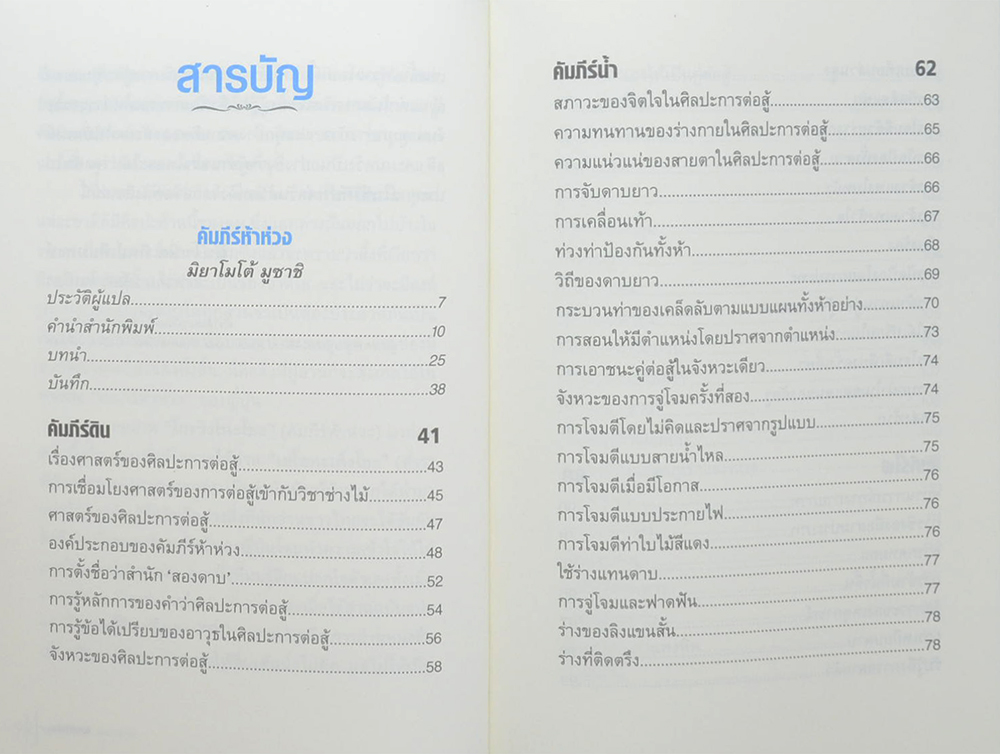 สารบัญ
คัมภีร์ห้าห่วง
มิยาโมโต้ มูซาชิ
ประวัติผู้แปล.....7
คำนำสำนักพิมพ์.....10
บทนำ.....25
บันทึก.....38
คัมภีร์ดิน 41
เรื่องศาสตร์ของศิลปะการต่อสู้.....43
การเชื่อมโยงศาสตร์ของการต่อสู้เข้ากับวิชาช่างไม้.....45
ศาสตร์ของศิลปะการต่อสู้.....47
องค์ประกอบของคัมภีร์ห้าห่วง.....48
การตั้งชื่อว่าสำนัก ‘สองดาบ’.....52
การรู้หลักการของคำว่าศิลปะการต่อสู้.....54
การรู้ข้อได้เปรียบของอาวุธในศิลปะการต่อสู้.....56
จังหวะของศิลปะการต่อสู้.....58
คัมภีร์น้ำ 62
สภาวะของจิตใจในศิลปะการต่อสู้.....63
ความทนทานของร่างกายในศิลปะการต่อสู้.....65
ความแน่วแน่ของสายตาในศิลปะการต่อสู้.....66
การจับดาบยาว.....66
การเคลื่อนเท้า.....67
ท่วงท่าป้องกันทั้งห้า.....68
วิถีของดาบยาว.....69
กระบวนท่าของเคล็ดลับตามแบบแผนทั้งห้าอย่าง.....70
การสอนให้มีตำแหน่งโดยปราศจากตำแหน่ง.....73
การเอาชนะคู่ต่อสู้ในจังหวะเดียว.....74
จังหวะของการจู่โจมครั้งที่สอง.....74
การโจมตีโดยไม่คิดและปราศจากรูปแบบ.....75
การโจมตีแบบสายน้ำไหล.....75
การโจมตีเมื่อมีโอกาส.....76
การโจมตีแบบประกายไฟ.....76
การโจมตีท่าใบไม้สีแดง.....76
ใช้ร่างแทนดาบ.....77
การจู่โจมและฟาดฟัน.....77
ร่างของลิงแขนสั้น.....78
ร่างที่ติดตรึง.....78